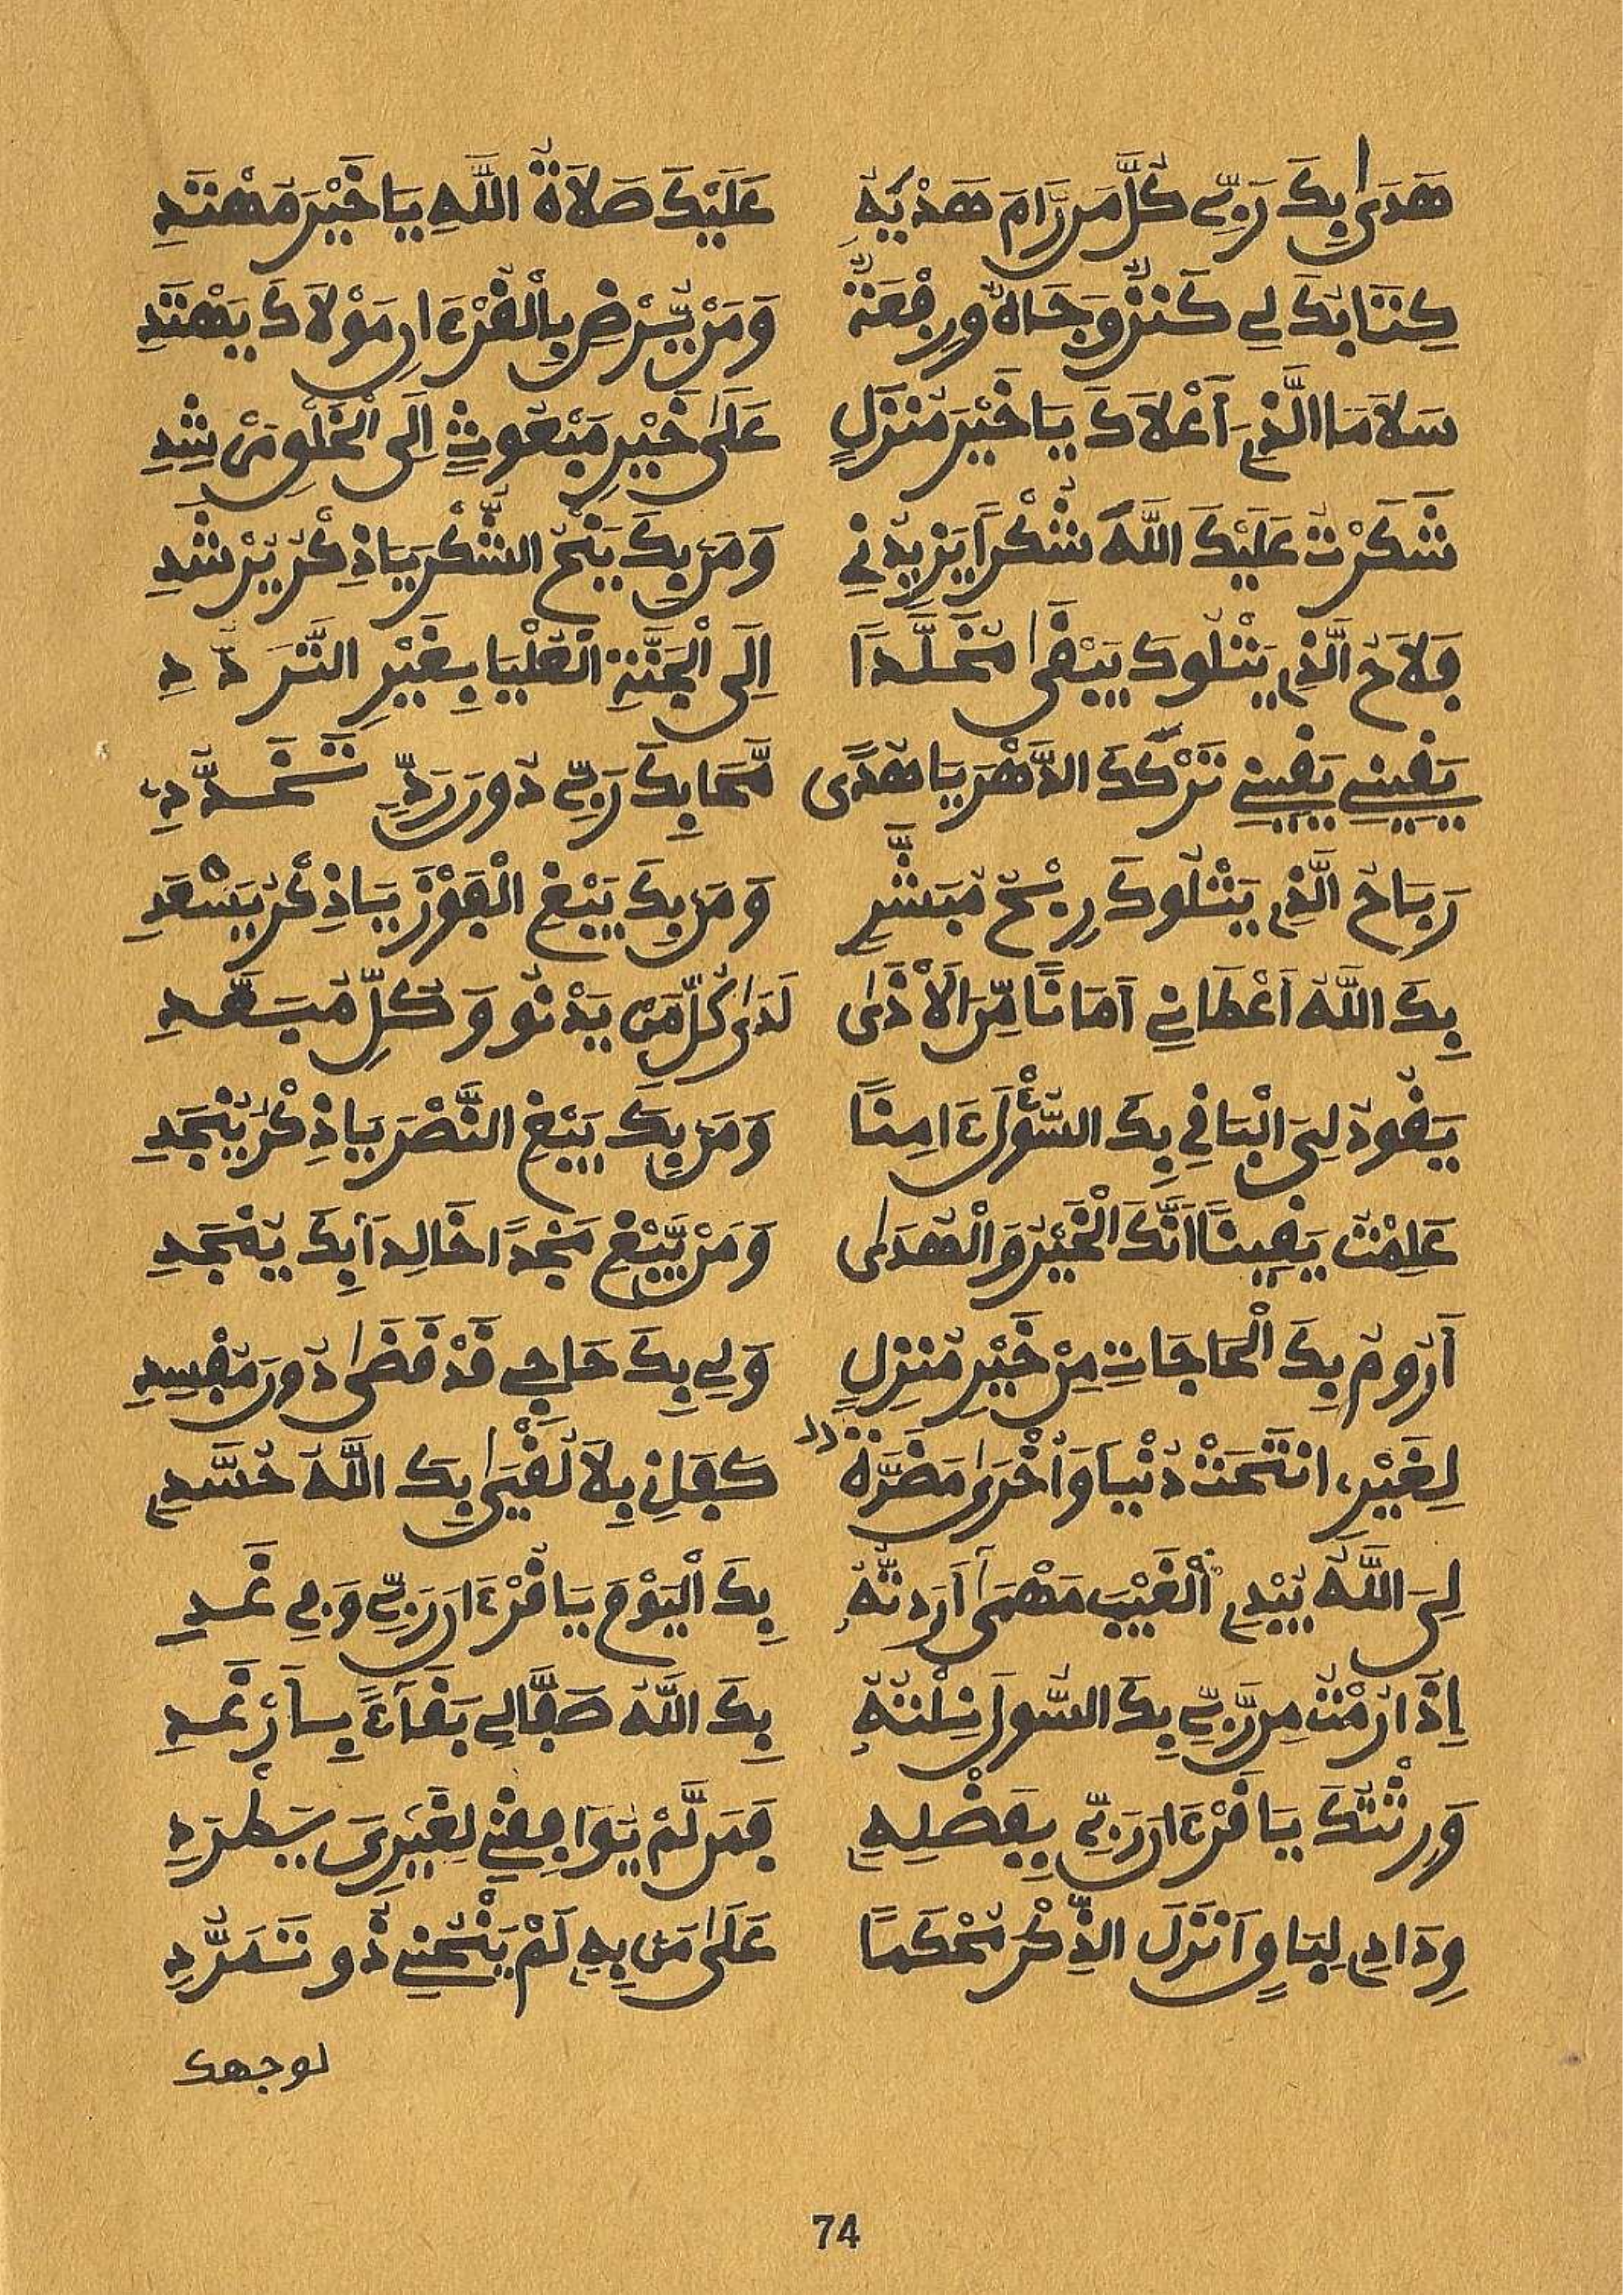 هَدَىٰ بِكَ رَبِّي كُلَّ مَن رَّامَ هَدْيَهُ عَلَيْكَ صَلَاةُ اللَّهِ يَا خَيْرَ مُهْتَدِ
كِتَابُكَ لِي كَنْزٌ وَجَاهٌ وَرِفْعَةٌ وَمَنْ يَّرْضَ بِالْقُرْءَانِ مَوْلَاكَ يَهْتَدِ
سَلَامَا الَّذِي أَعْلَاكَ يَا خَيْرَ مُنزَلٍ عَلَىٰ خَيْرِ مَبْعُوثٍ إِلَى الْخَلْقِ مُرْشِدِ
شَكَرْتُ عَلَيْكَ اللَّهَ شُكْرًا يَزِيدُنِي وَمَن بِكَ يَنْحُ الشُّكْرَ يَا ذِكْرُ يُرْشَدِ
فَلَاحُ الَّذِي يَتْلُوكَ يَبْقَىٰ مُخَلَّدًا إِلَى الْجَنَّةِ الْعُلْيَا بِغَيْرِ التَّرَدُّدِ
يَقِينِي يَقِينِي تَرْكَكَ الدَّهْرَ يَا هُدًى مَحَا بِكَ رَبِّي دُونَ رَدٍّ تَخَدُّدِ
رَبَاحُ الَّذِي يَتْلُوكَ رِبْحُ مُبَشَّرٍ وَمَن بِكَ يَبْغِ الْفَوْزَ يَا ذِكْرُ يَسْعَدِ
بِكَ اللَّهُ أَعْطَانِي أَمَانًا مِّنَ الْأَذَىٰ لَدَىٰ كُلِّ مَن يَدْنُو وَكُلِّ مُبَعَّدِ
يَقُودُ لِيَ الْبَاقِي بِكَ السُّؤْلَ ءَامِنًا وَمَن بِكَ يَبْغِ النَّصْرَ يَا ذِكْرُ يُنْجَدِ
عَلِمْتُ يَقِينًا أَنَّكَ الْخَيْرُ وَالْهُدَىٰ وَمَنْ يَّبْغِ مَجْدًا خَالِدًا بِكَ يُنْجَدِ
أَرُومُ بِكَ الْحَاجَاتِ مِنْ خَيْرِ مُنزِلٍ وَلِي بِكَ حَاجِي قَدْ قَضَىٰ دُونَ مُفْسِدِ
لِغَيْرِي انْتَحَتْ دُنْيَا وَأُخْرَىٰ مَضَرَّةٌ كَفَانِي بِلَا لُقْيَىٰ بِكَ اللَّهُ حُسَّدِي
لِيَ اللَّهُ يُبْدِي الْغَيْبَ مَهْمَىٰ أَرَدتُّهُ بِكَ الْيَوْمَ يَا قُرْءَانَ رَبِّي وَفِي غَدِ
إِذَا رُمْتُ مِن رَّبِّي بِكَ السُّولَ نِلْتُهُ بِكَ اللَّهُ صَفَّا لِي بَقَاءً بِسَأَرْغَدِ
وَرِثْتُكَ يَا قُرْءَانَ رَبِّي بِفَضْلِهِ فَمَن لَّمْ يُوَافِقْنِي لِغَيْرِيَ يَطْرَدِ
وِدَادِي لِبَاقٍ أَنزَلَ الذِّكْرَ مُحْكَمًا عَلَىٰ مَن بِهِ لَمْ يَنْحُنِي ذُو تَمَرُّدِ
لوجهك
74